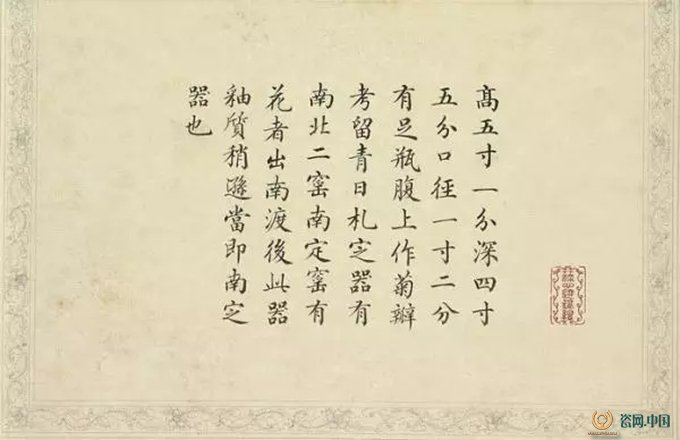 高五寸一分深四寸
五分口徑一寸二分
有足瓶腹上作菊瓣
考留青日札定器有
南北二窑南定窑有
花者出南渡後此器
釉質稍遜當即南定
器也
瓷网.中国